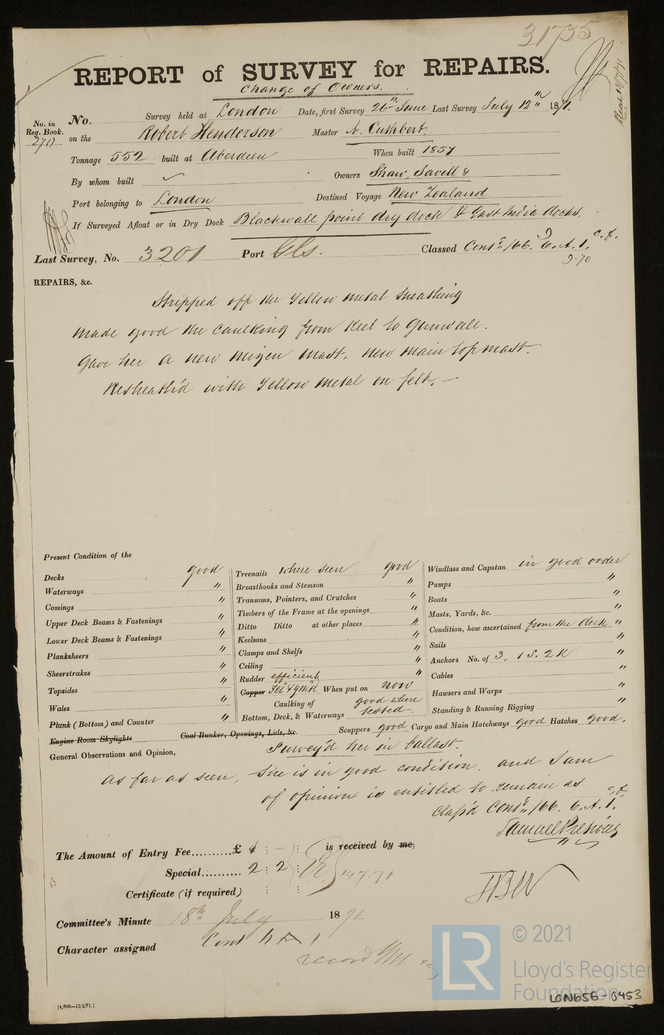 31735
REPORT of SURVEY for REPAIRS.
Change of Owners.
No. in Reg. Book. 2711
No. Survey held at London Date, first Survey 26th June Last Survey July 12th 1871.
on the Robert Henderson Master A. Cuthbert.
Tonnage 552 built at Aberdeen When built 1857
By whom built Owners Shaw, Savill &
Port belonging to London Destined Voyage New Zealand
If Surveyed Afloat or in Dry Dock Blackwall point dry dock & East India docks.
Last Survey, No. 3201 Port Gls. Classed Contd. /66. 6. A. 1. c.f.
2.70
REPAIRS, &c.
Stripped off the Yellow metal Sheathing
made good the caulking from Keel to Gunwale.
Gave her a new mizen mast, new main topmast.
Resheath'd with Yellow metal on felt. —
Present Condition of the
Decks good
Waterways "
Comings "
Upper Deck Beams & Fastenings "
Lower Deck Beams & Fastenings "
Planksheers "
Sheerstrakes "
Topsides "
Wales "
Plank (Bottom) and Counter "
Engine Room Skylights
Treenails where seen good
Breasthooks and Stemson "
Transoms, Pointers, and Crutches "
Timbers of the Frame at the openings "
Ditto Ditto at other places "
Keelsons "
Clamps and Shelfs "
Ceiling "
Rudder efficient "
Copper When put on now
Caulking of Bottom, Deck, & Waterways good where tested.
Coal Bunker, Openings, Lids, &c.
Windlass and Capstan in good order
Pumps "
Boats "
Masts, Yards, &c. "
Condition, how ascertained from the deck "
Sails "
Anchors No. of 3. 1S. 2K "
Cables "
Hawsers and Warps "
Standing & Running Rigging "
Scuppers good Cargo and Main Hatchways good Hatches good.
General Observations and Opinion, Survey'd her in ballast.
As far as seen, She is in good condition, and I am
of opinion is entitled to remain as
Class'd Contd. /66. 6. A. 1. c.f.
Samuel
The Amount of Entry Fee £ is received by me,
Special 2 : 2
Certificate (if required)
Committee's Minute 18th July 1871
Character assigned Cont 6 A 1
record
[4,000—15/2/71.]
LR © 2021
Lloyd's Register
Foundation
LON656-0453